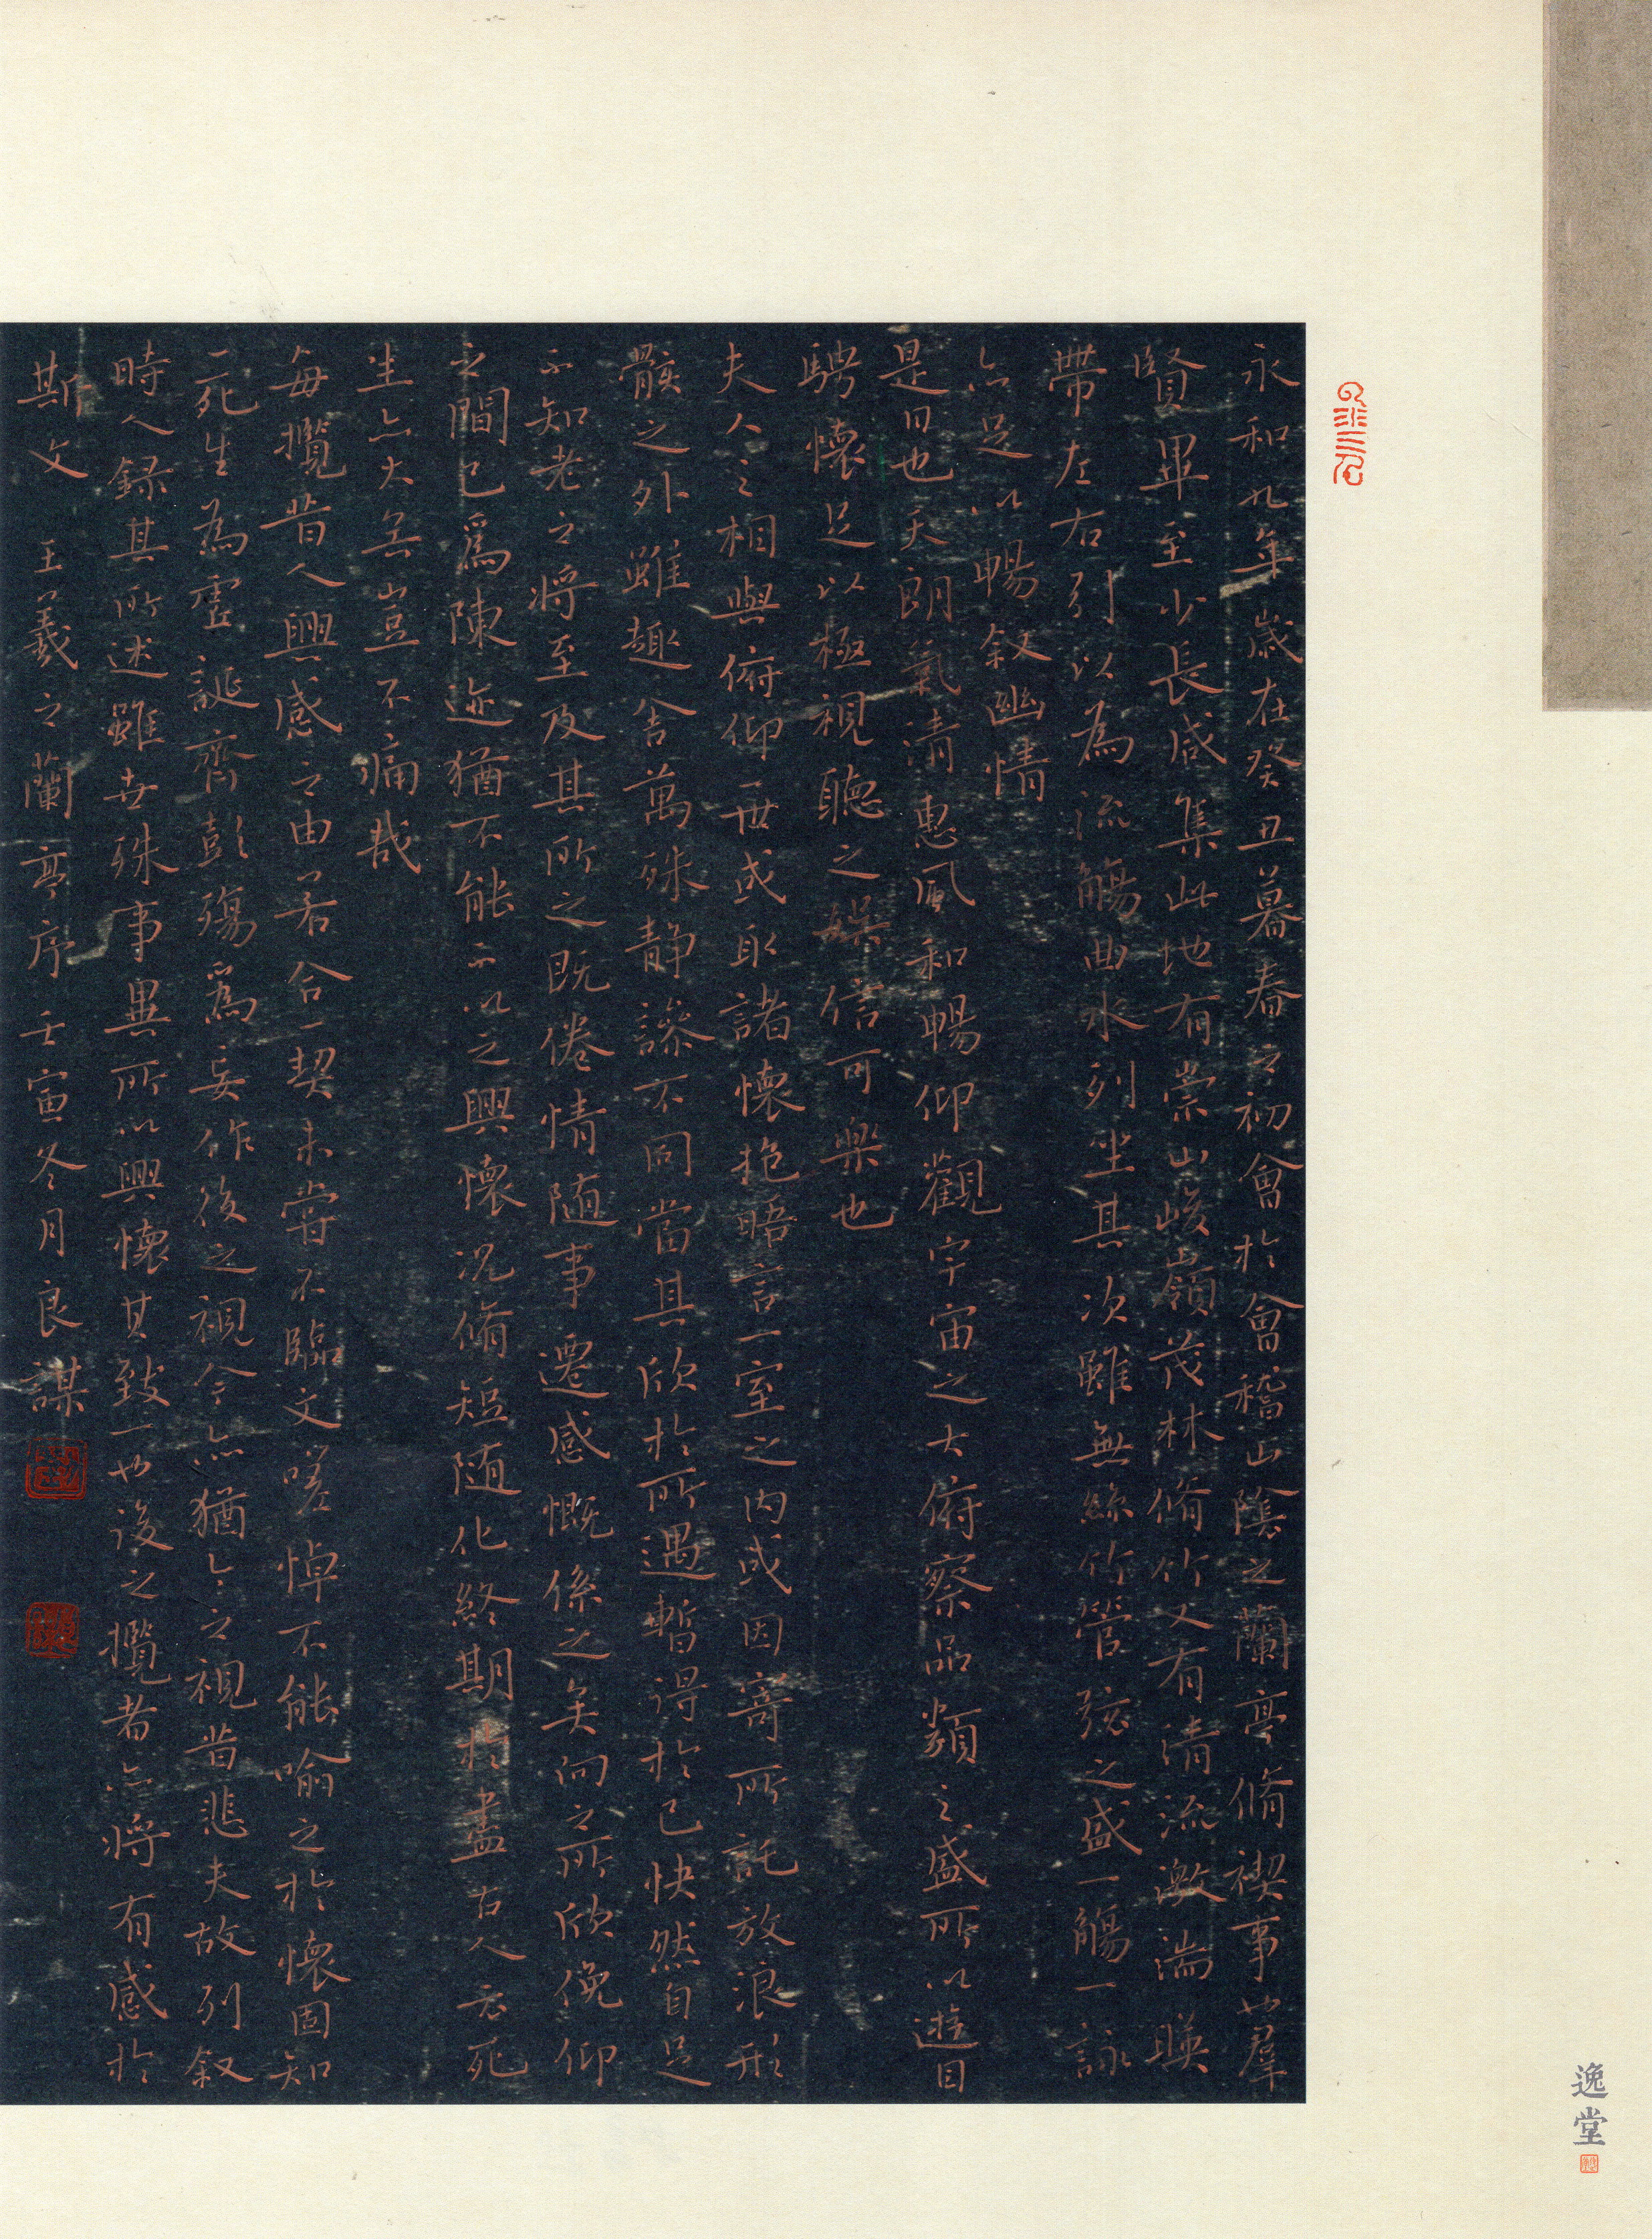 永和九年歲在癸丑暮春之初會於會稽山陰之蘭亭脩禊事也羣
賢畢至少長咸集此地有崇山峻嶺茂林脩竹又有清流激湍暎
帶左右引以為流觴曲水列坐其次雖無絲竹管弦之盛一觴一詠
亦足以暢敘幽情
是日也天朗氣清惠風和暢仰觀宇宙之大俯察品類之盛所以遊目
騁懷足以極視聽之娛信可樂也
夫人之相與俯仰一世或取諸懷抱晤言一室之內或因寄所託放浪形
骸之外雖趣舍萬殊静躁不同當其欣於所遇暫得於己快然自足
不知老之將至及其所之既倦情隨事遷感慨係之矣向之所欣俛仰
之間已為陳迹猶不能不以之興懷況脩短隨化終期於盡古人云死
生亦大矣豈不痛哉
每攬昔人興感之由若合一契未嘗不臨文嗟悼不能喻之於懷固知
一死生為虛誕齊彭殤為妄作後之視今亦猶今之視昔悲夫故列叙
時人錄其所述雖世殊事異所以興懷其致一也後之攬者亦將有感於
斯文 王羲之蘭亭序壬寅冬月良謀
逸堂